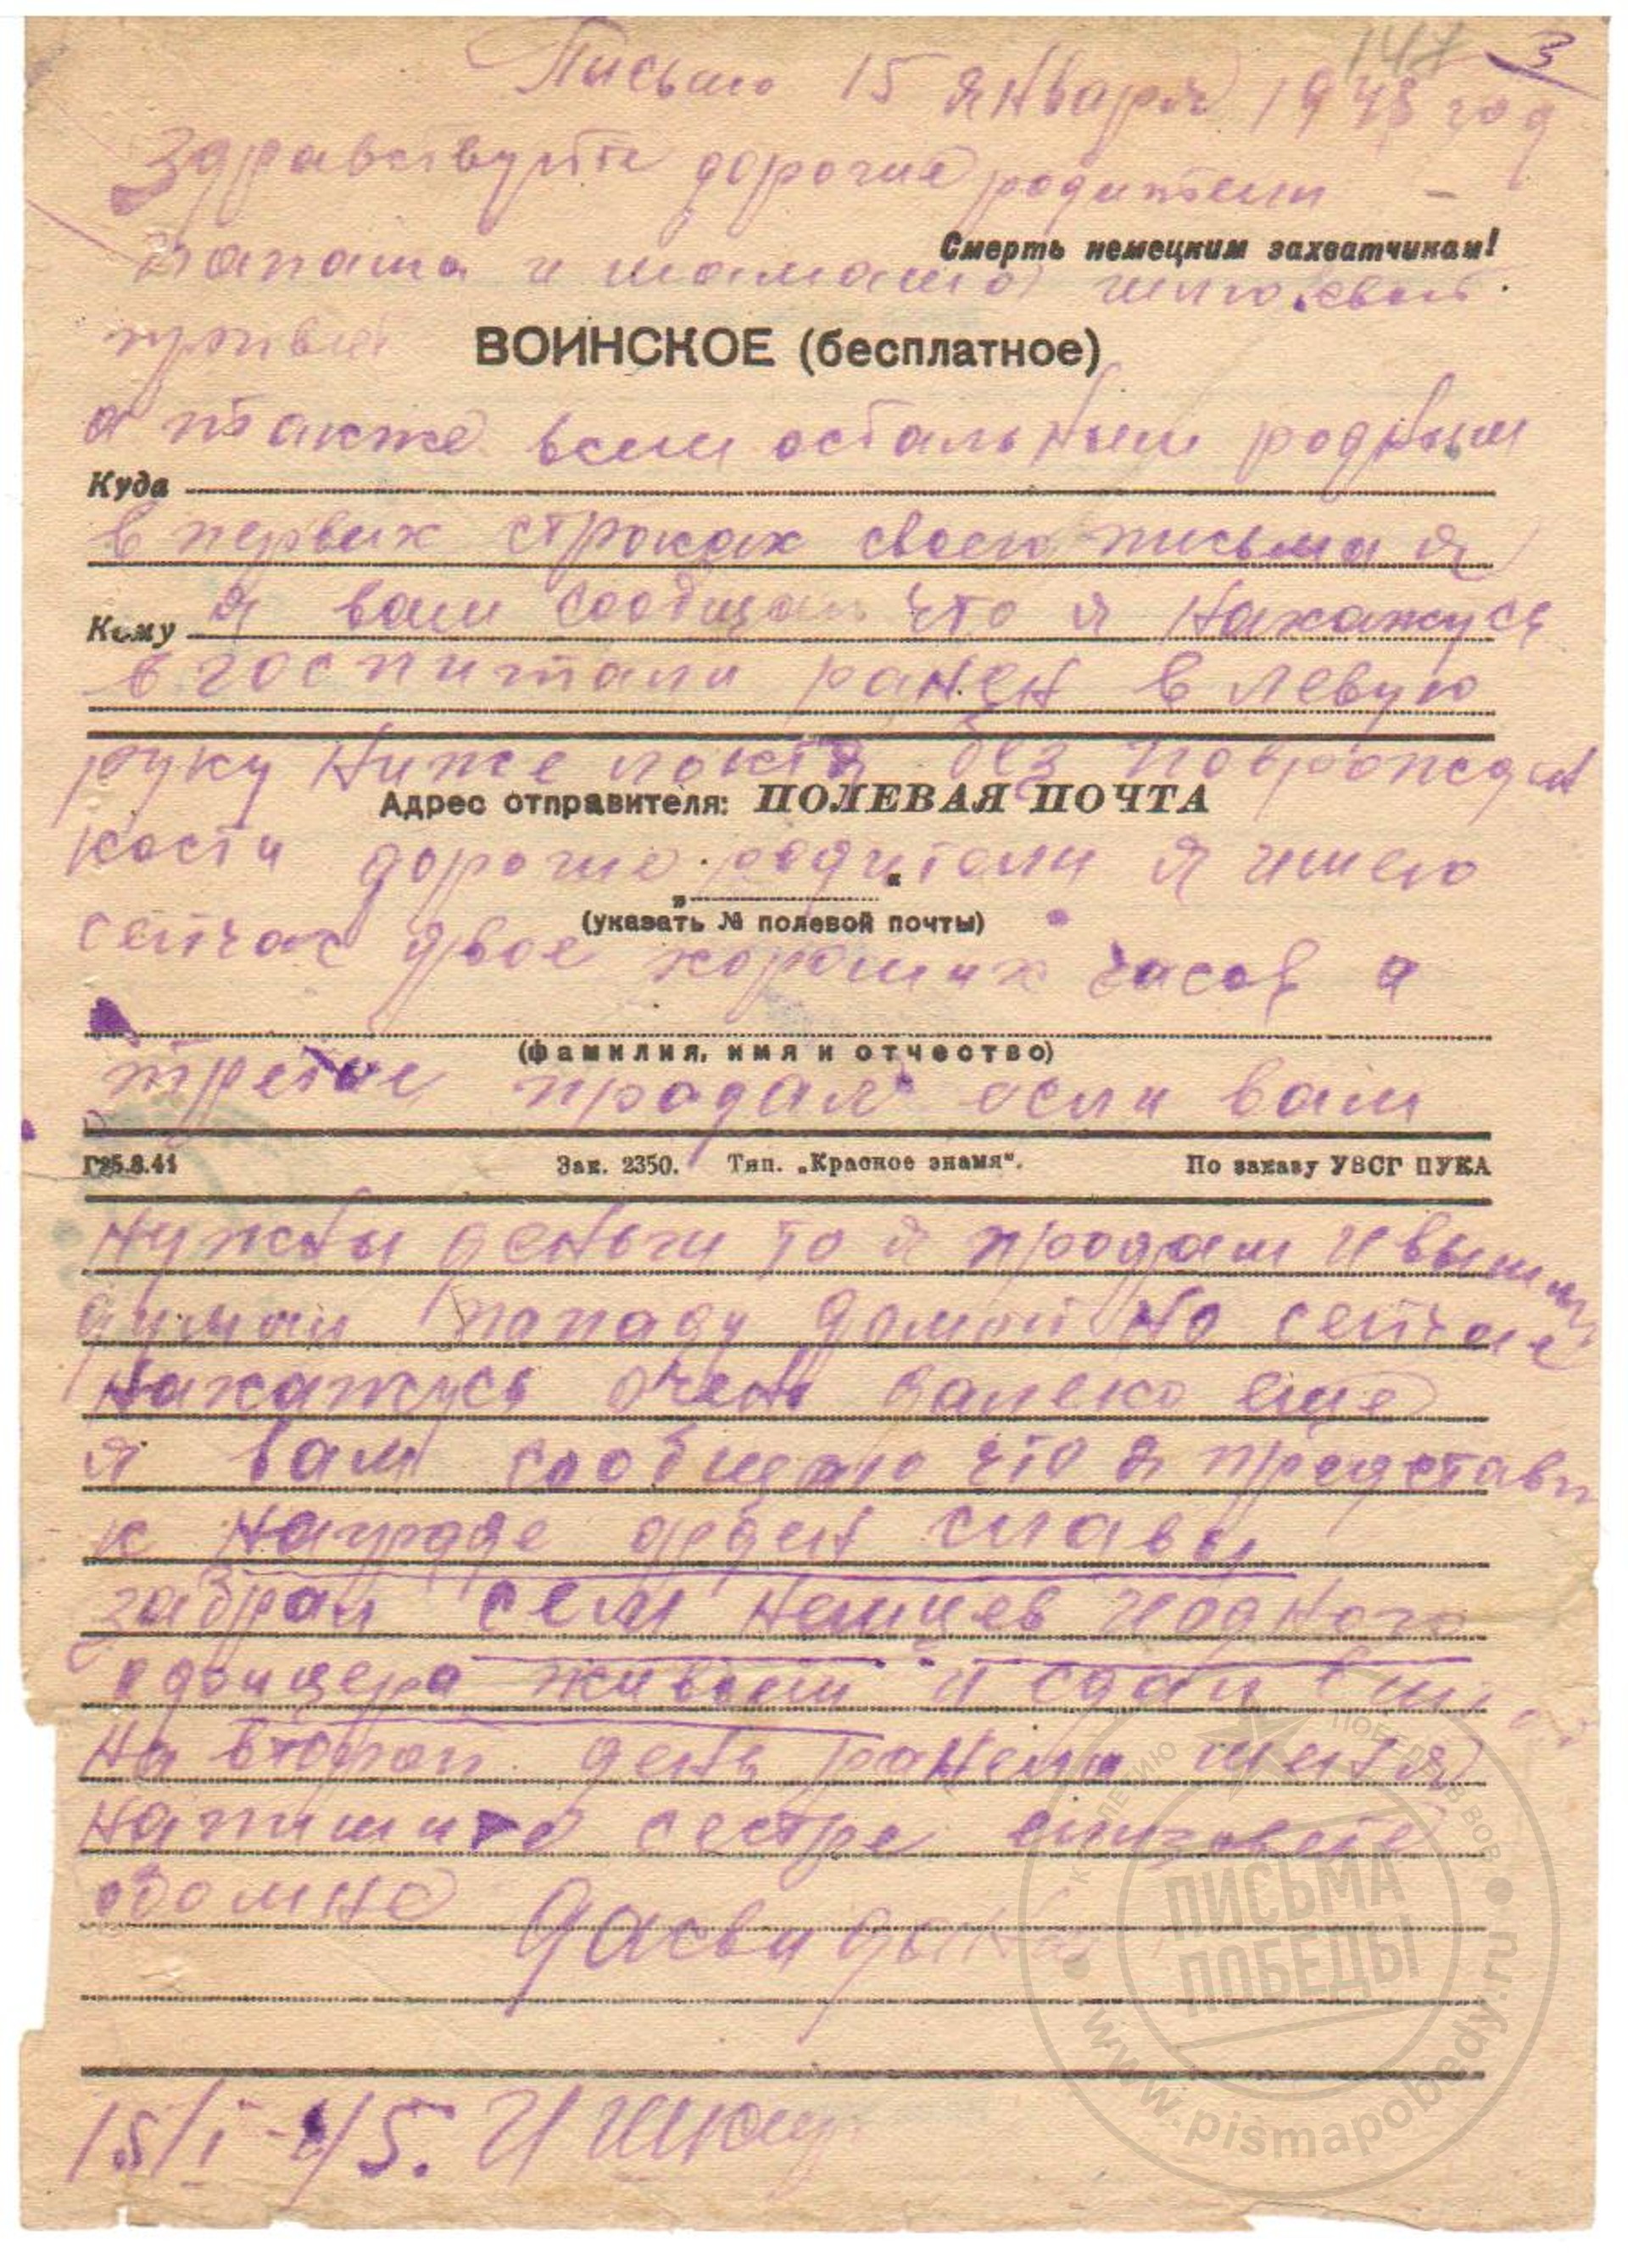 147 3
Письмо 15 января 1945 год
Здравствуйте дорогие родители –
Смерть немецким захватчикам!
папаша и мамаша
привет
ВОИНСКОЕ (бесплатное)
а также всем остальным родным
Куда
в первых строках своего письма я
Кому
я вам сообщаю что я нахажусь
в госпитали ранен в левую
руку ниже локтя без
Адрес отправителя: ПОЛЕВАЯ ПОЧТА
кости дорогие родители я имею
„ “
(указать № полевой почты)
сейчас двое хороших часов а
(фамилия, имя и отчество)
третие продал если вам
Г25.8.41 Зак. 2350. Тип. „Красное знамя“. По заказу УВСГ ПУКА
нужны деньги то я продам и вышлю
думаю попаду домой но сейчас
нахажусь очень далеко еще
я вам сообщаю что я представ
к награде орден славы
забрал сем немцев и одного
офицера живьем и сдал в
на второй день ранели меня
напишите сестре елизовете
обомне
дасвидания
15/I-45. И
К ЛЕТИЮ ПОБЕДЫ В ВОВ
ПИСЬМА
ПОБЕДЫ
www.pismapobedy.ru